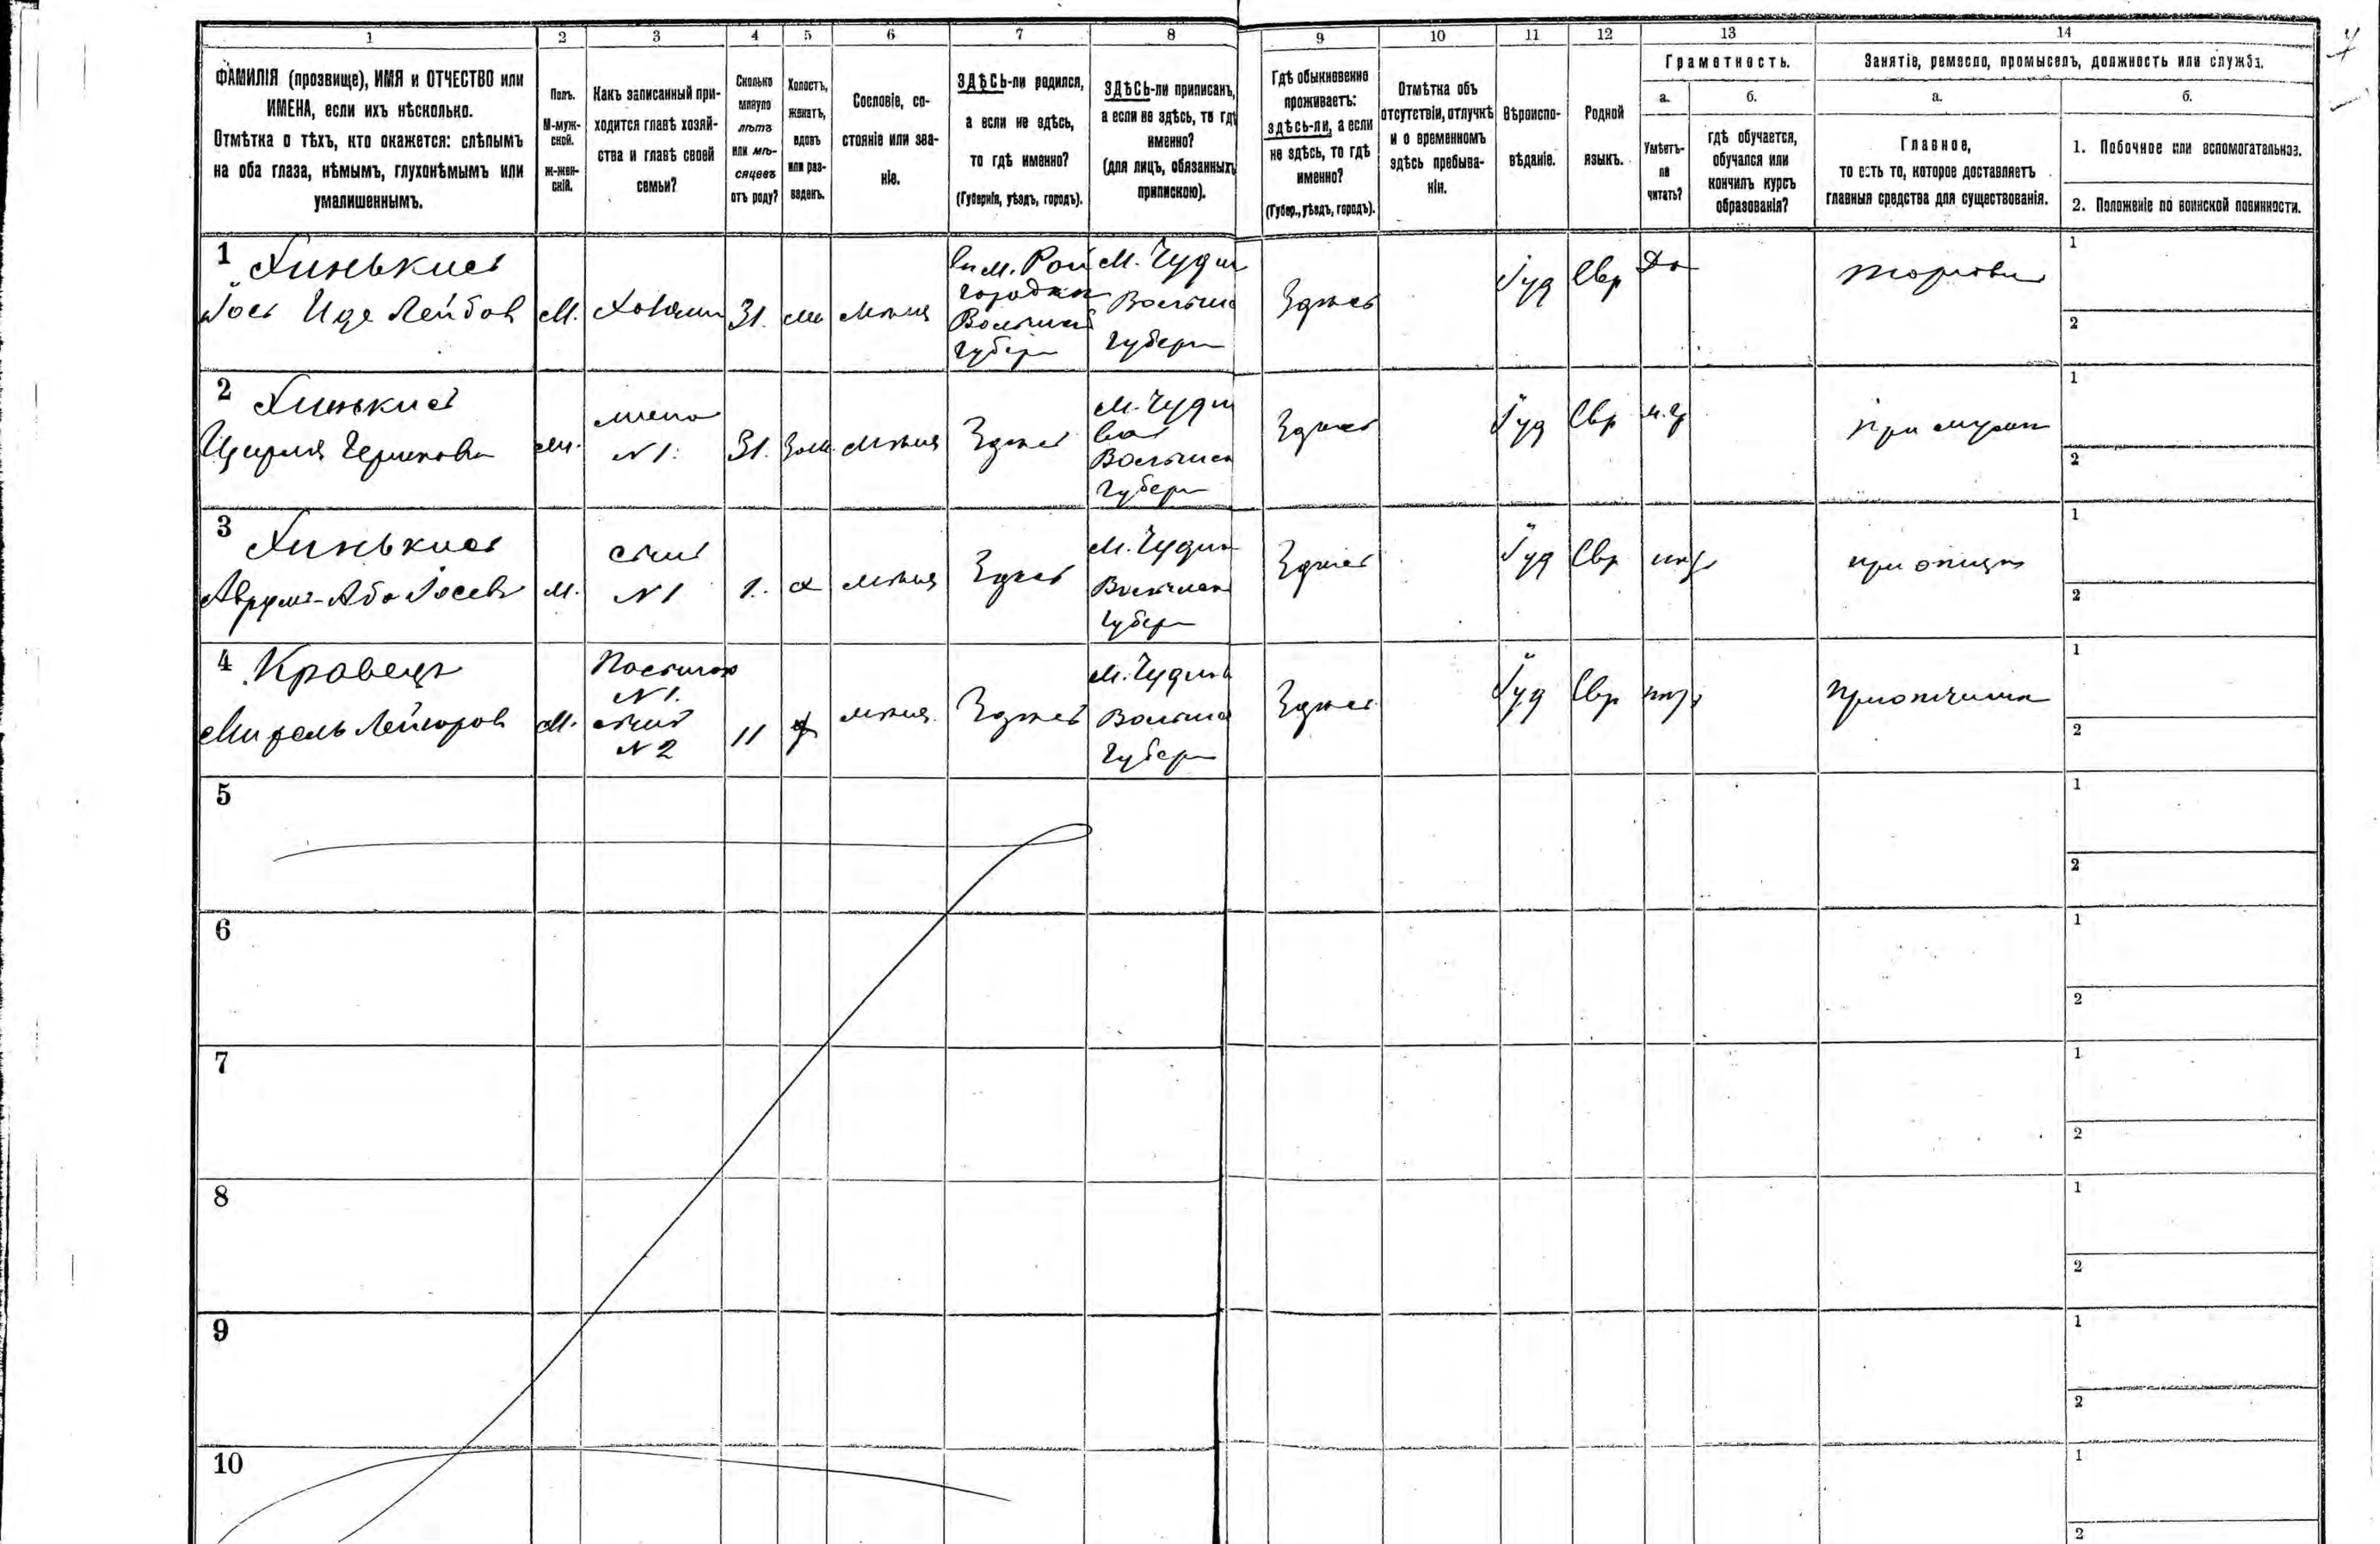 1 2 3 4 5 6 7 8 9 10 11 12 13 14
ФАМИЛІЯ (прозвище), ИМЯ и ОТЧЕСТВО или
ИМЕНА, если ихъ нѣсколько.
Отмѣтка о тѣхъ, кто окажется: слѣпымъ
на оба глаза, нѣмымъ, глухонѣмымъ или
умалишеннымъ.
Полъ.
М-муж-
ской.
Ж-жен-
скій.
Какъ записанный при-
ходится главѣ хозяй-
ства и главѣ своей
семьи?
Сколько
минуло
лѣтъ
или мѣ-
сяцевъ
отъ роду?
Холостъ,
женатъ,
вдовъ
или раз-
веденъ.
Сословіе, со-
стояніе или зва-
ніе.
ЗДѢСЬ-ли родился,
а если не здѣсь,
то гдѣ именно?
(Губернія, уѣздъ, городъ).
ЗДѢСЬ-ли приписанъ,
а если не здѣсь, то гдѣ
именно?
(для лицъ, обязанныхъ
припискою).
Гдѣ обыкновенно
проживаетъ:
здѣсь-ли, а если
не здѣсь, то гдѣ
именно?
(Губер., уѣздъ, городъ).
Отмѣтка объ
отсутствіи, отлучкѣ
и о временномъ
здѣсь пребыва-
ніи.
Вѣроиспо-
вѣданіе.
Родной
языкъ.
Грамотность.
а.
Умѣетъ-
ли
читать?
б.
гдѣ обучается,
обучался или
кончилъ курсъ
образованія?
Занятіе, ремесло, промыселъ, должность или служба.
а.
Главное,
то есть то, которое доставляетъ
главныя средства для существованія.
б.
1. Побочное или вспомогательное.
2. Положеніе по воинской повинности.
1 Хинькисъ
Іось Иде Лейбов М. Хозяин 31.
городка
губерн
М. Чудн
Волын
губерн
Здѣсь
Іуд Евр Да
1
2
2 Хинькис
жена
№ 1. 31. Зам.
Здѣсь
М. Чудн
Волынск
губерн
Здѣсь
Іуд Евр
при муже
1
2
3 Хинькис
Аврум-Аба Іосев М.
сын
№ 1 1. х
Здѣсь
М. Чудн
Волынск
губерн
Здѣсь
Іуд Евр
при отце
1
2
4 Кравец
М.
№ 1.
сын
№ 2 11
Здѣсь
М. Чуднов
Волын
губерн
Здѣсь
Іуд Евр
при отчиме
1
2
5
1
2
6
1
2
7
1
2
8
1
2
9
1
2
10
1
2